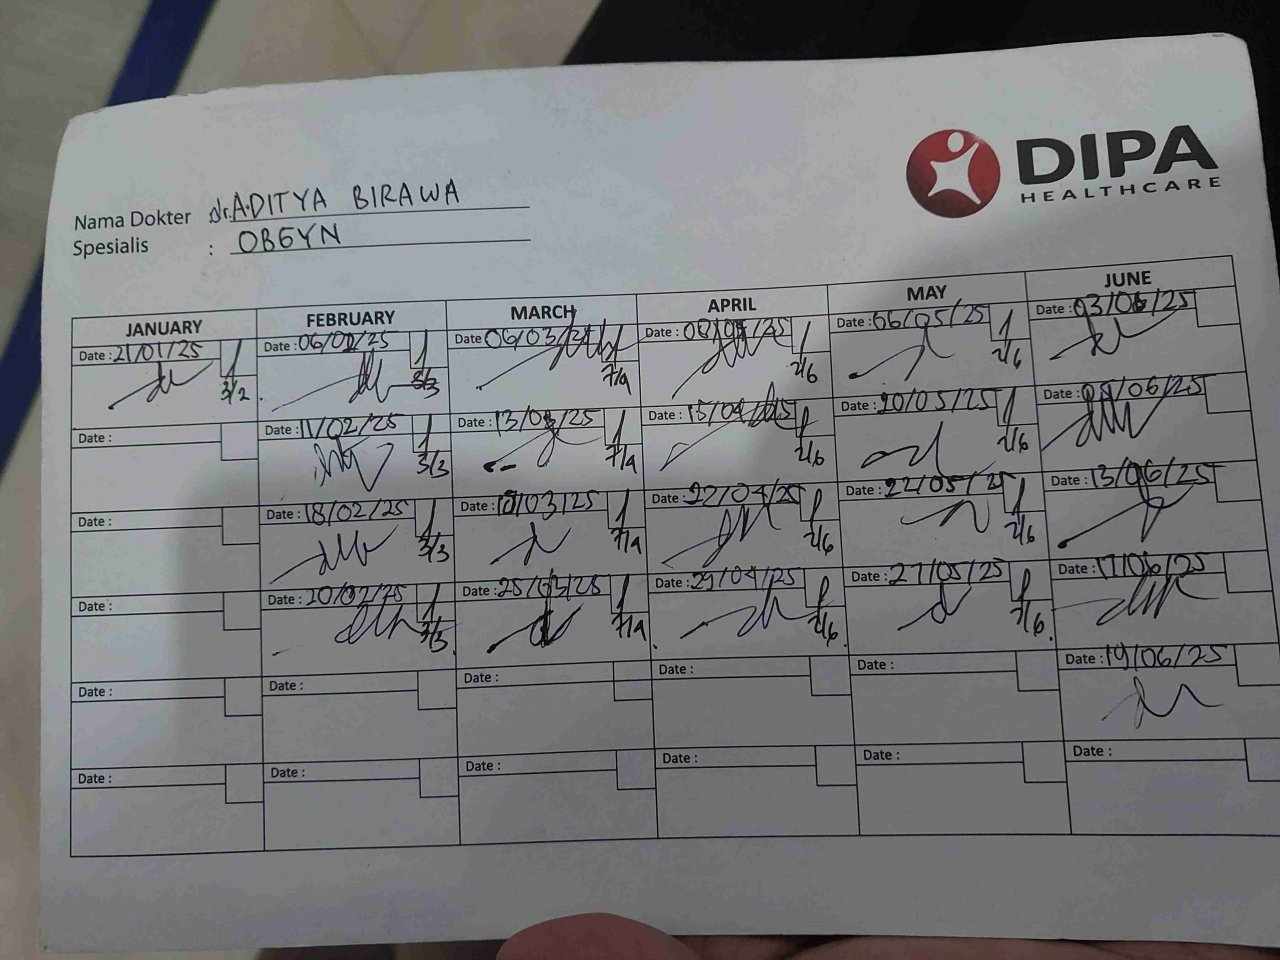 DIPA
HEALTHCARE
Nama Dokter dr. ADITYA BIRAWA
Spesialis : OBGYN
JANUARY FEBRUARY MARCH APRIL MAY JUNE
Date : 21/01/25 Date : 06/02/25 Date 06/03/25 Date : 08/04/25 Date : 06/05/25 Date : 03/06/25
3/2 3/3 7/4 2/6 2/6
Date : Date : 11/02/25 Date : 13/03/25 Date : 15/04/25 Date : 20/05/25 Date : /06/25
3/3 7/4 2/6 2/6
Date : Date : 18/02/25 Date : 18/03/25 Date : 22/04/25 Date : 22/05/25 Date : 13/06/25
3/3 7/4 2/6 2/6
Date : Date : 20/02/25 Date : 25/03/25 Date : 29/04/25 Date : 27/05/25 Date : 17/06/25
3/3 7/4 2/6 2/6
Date : Date : Date : Date : Date : Date : 19/06/25
Date : Date : Date : Date : Date : Date :